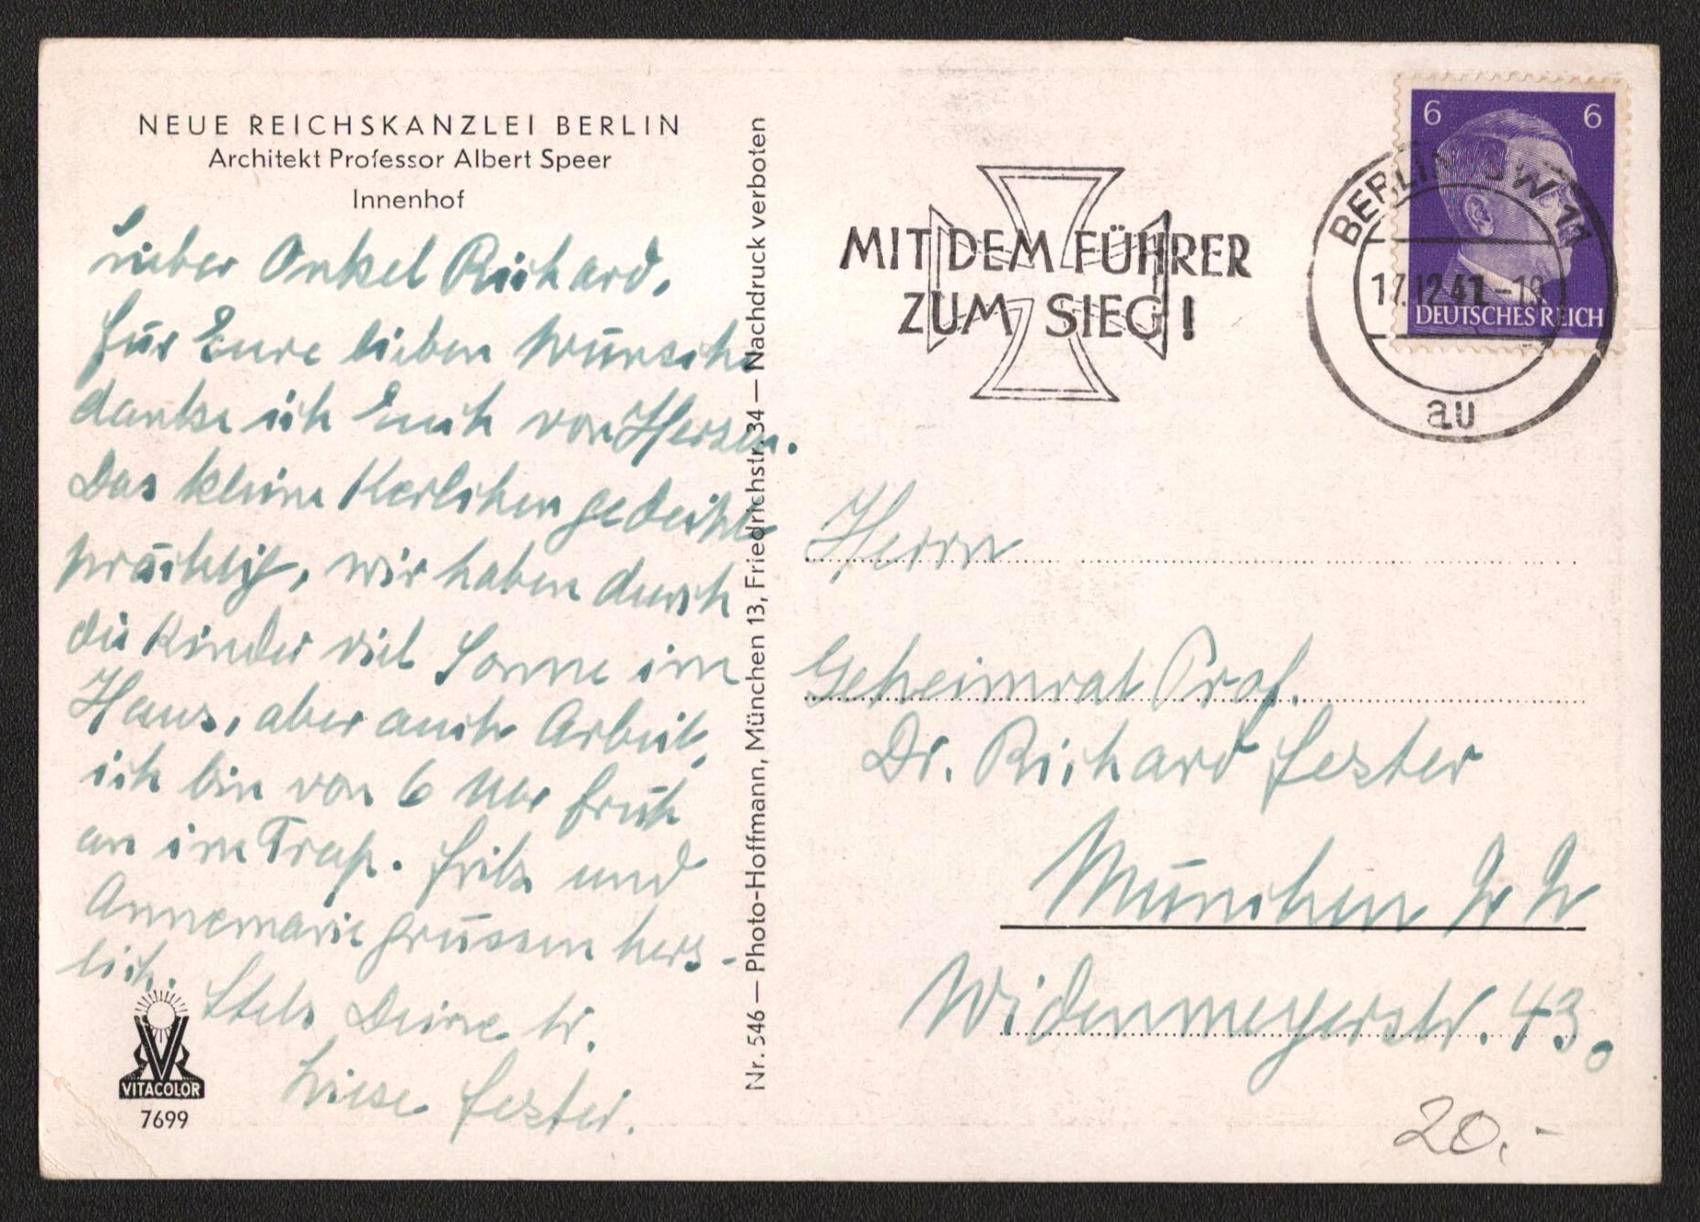 NEUE REICHSKANZLEI BERLIN
Architekt Professor Albert Speer
Innenhof
Lieber Onkel Richard,
für Eure lieben Wünsche
danke ich Euch von Herzen.
Das kleine Kerlchen gedeiht
prächtig, wir haben durch
die Kinder viel Sonne im
Haus, aber auch Arbeit,
ich bin von 6 Uhr früh
an im Trap. Fritz und
Annemarie grüssen herz-
lich. Stets Deine tr.
Liese Fester.
VITACOLOR
7699
Nr. 546 — Photo-Hoffmann, München 13, Friedrichstr. 34 — Nachdruck verboten
MIT DEM FÜHRER
ZUM SIEG!
BERLIN SW 11
17.12.41.-19
au
6 6
DEUTSCHES REICH
Herrn
Geheimrat Prof.
Dr. Richard Fester
München
Widenmeyerstr. 43.
20.-